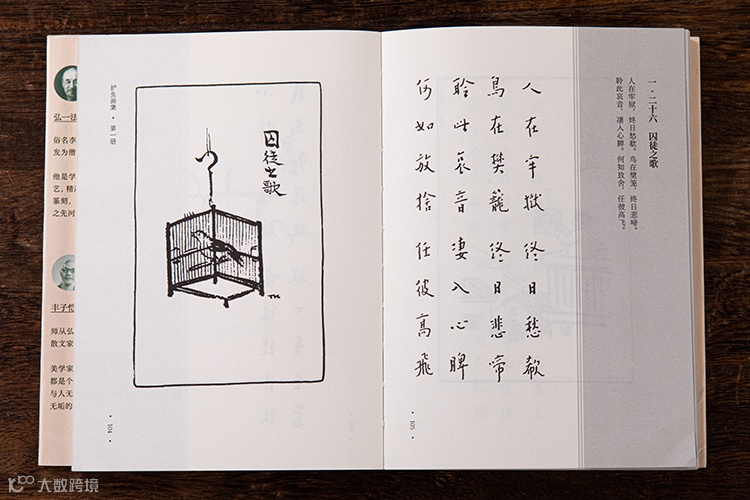 弘一法
俗名李
发为僧
他是学
艺，精通
篆刻，
之先河
丰子恺
师从弘
散文家
美学家
都是个
与人无
无垢的
护生画集 · 第一册
囚徒之歌
TK
· 104 ·
一·二十六 囚徒之歌
人在牢狱，终日愁欷。鸟在樊笼，终日悲啼。
聆此哀音，凄入心脾。何如放舍，任彼高飞。
人在牢獄終日愁欷
鳥在樊籠終日悲啼
聆此哀音凄入心脾
何如放捨任彼高飛
· 105 ·
大数跨境